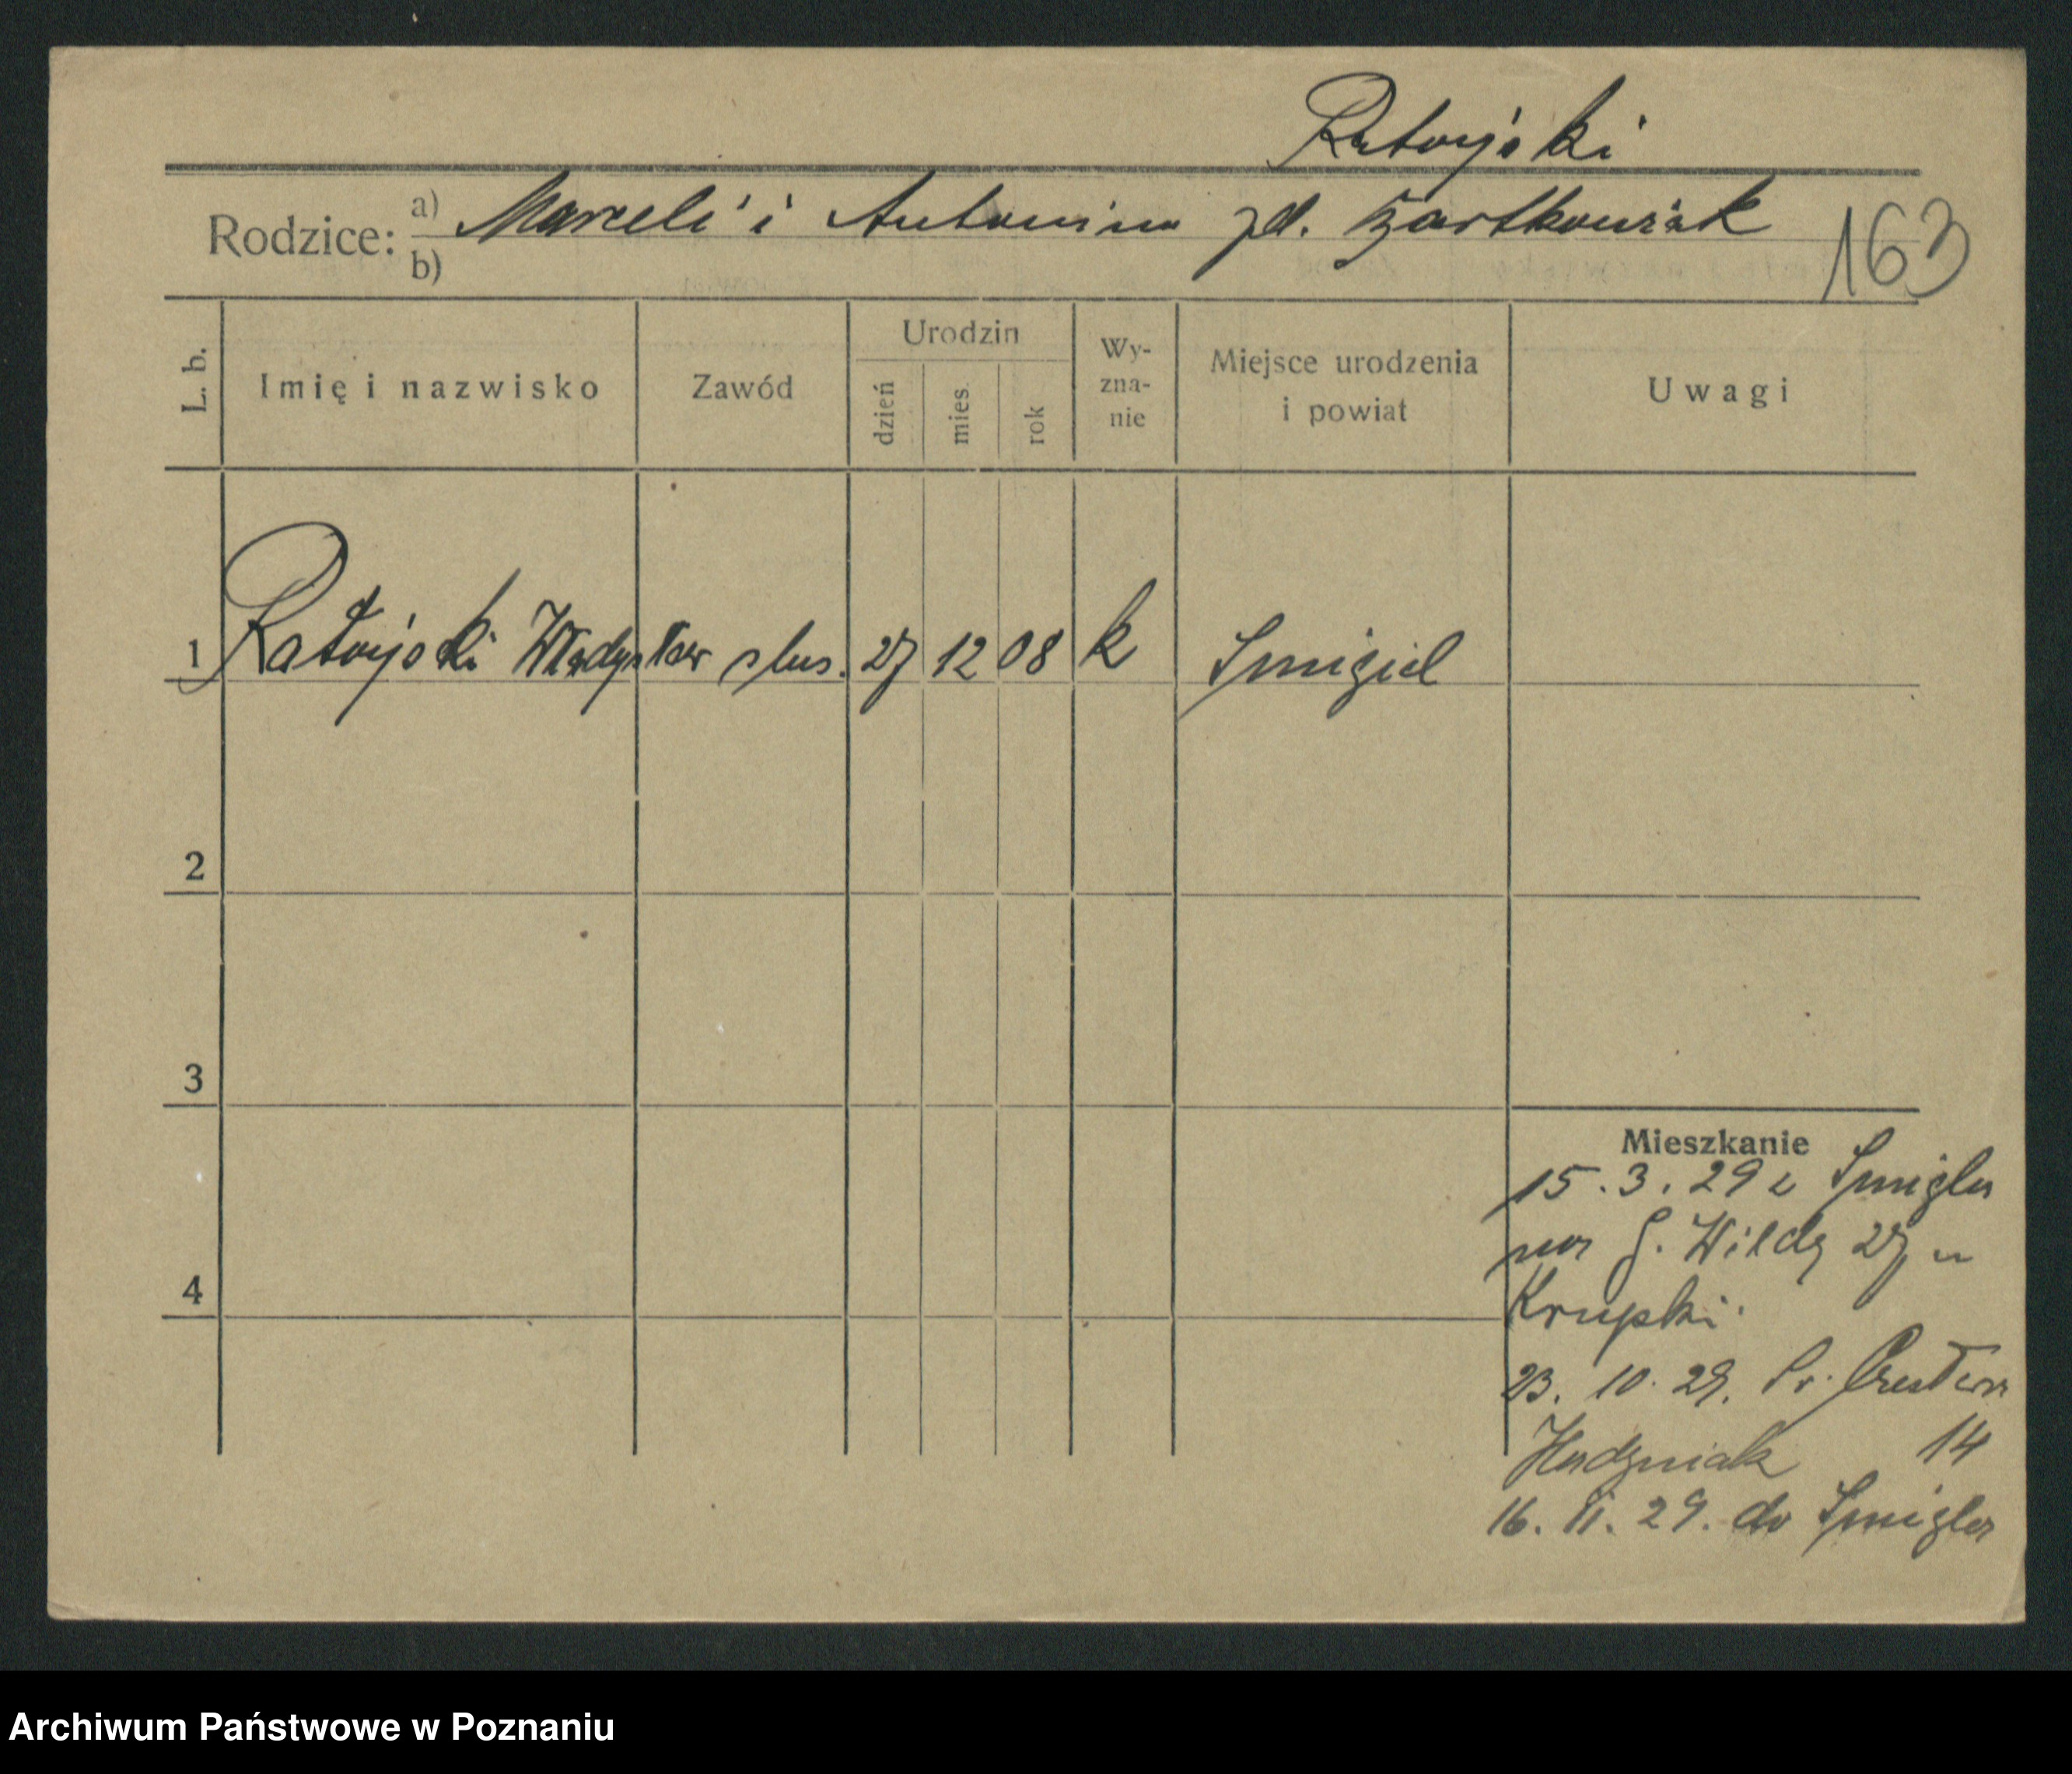 Ratajski
Rodzice: a) Marceli i Antonina zd. Bartkowiak
b)
163
L. b.
Imię i nazwisko
Zawód
Urodzin
dzień
mies.
rok
Wy-
zna-
nie
Miejsce urodzenia
i powiat
Uwagi
1 Ratajski Władysław slus. 27 12 08 k Smigiel
2
3
Mieszkanie
15. 3. 29 z Smigla
na G. Wildę 27 u
4
Krupki
23. 10. 29.
14
16. 11. 29. do Smigla
Archiwum Państwowe w Poznaniu